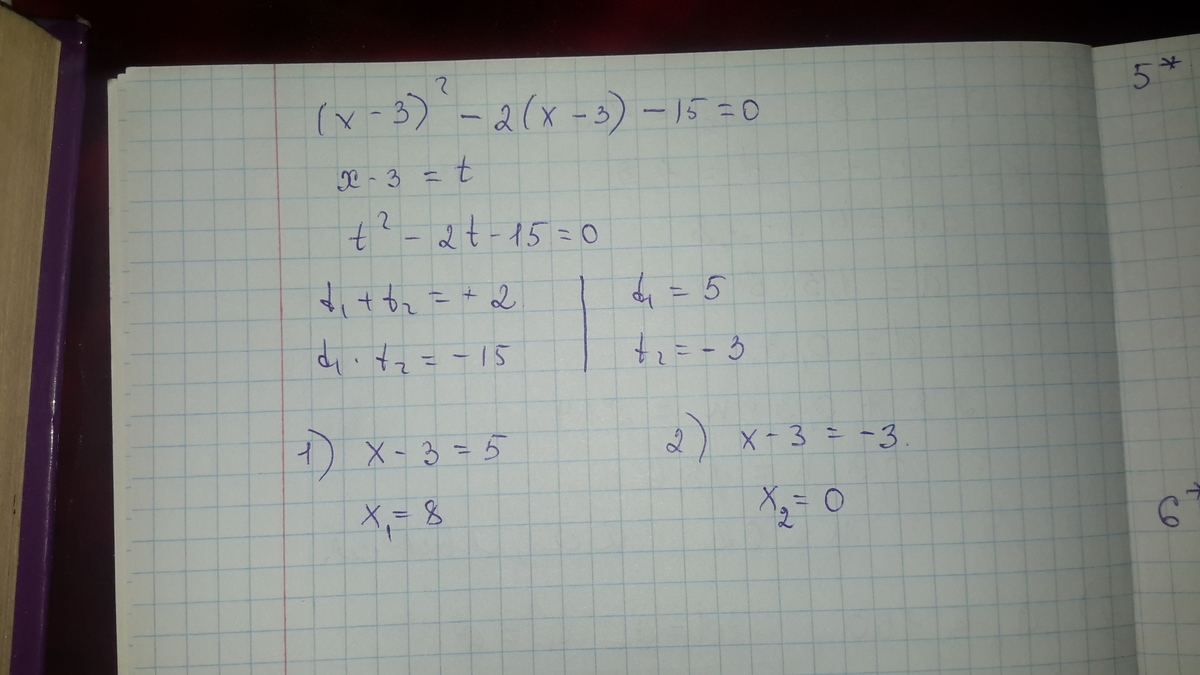 (x - 3)² - 2(x - 3) - 15 = 0
x - 3 = t
t² - 2t - 15 = 0
t₁ + t₂ = + 2 | t₁ = 5
t₁ · t₂ = - 15 | t₂ = - 3
1) x - 3 = 5
x₁ = 8
2) x - 3 = -3.
x₂ = 0
5*
6*